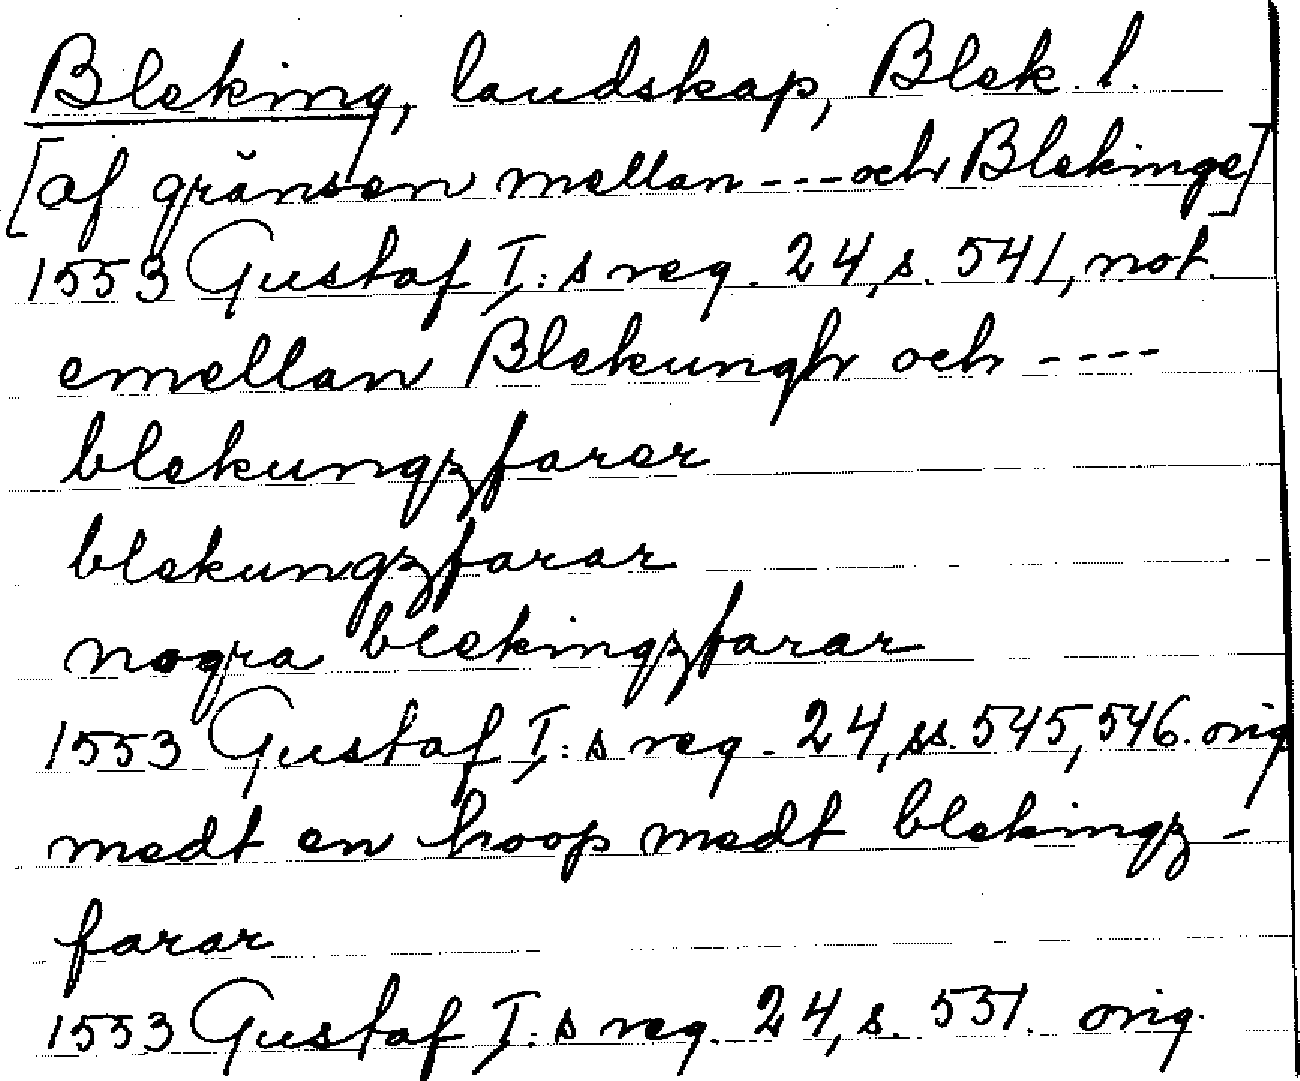 Bleking, landskap, Blek. l.
[af gränsen mellan ---och Blekinge]
1553 Gustaf I:s reg. 24, s. 541, not.
emellan Blekungh och ----
blekungzfarer
blekungzfarar
nogra blekingzfarar
1553 Gustaf I:s reg. 24, ss. 545, 546. orig
medt en hoop medt blekingz-
farar
1553 Gustaf I:s reg. 24, s. 531. orig.